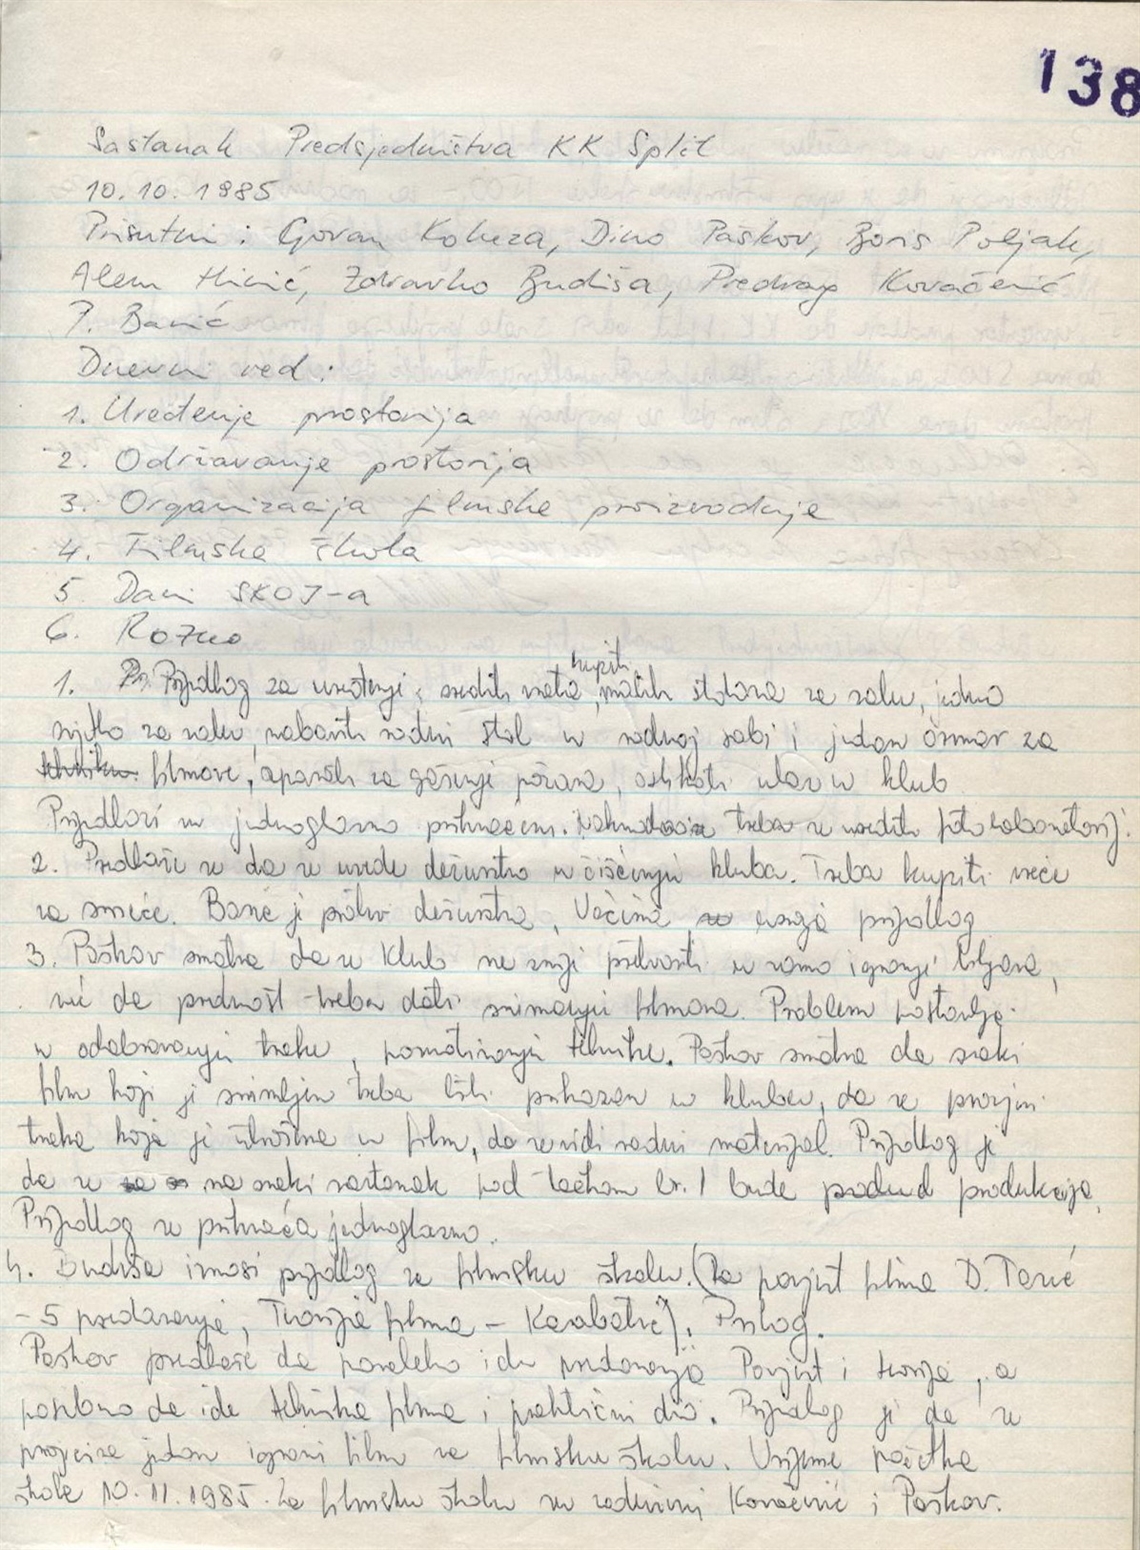 138
Sastanak Predsjedništva KK Split
10.10.1985
Prisutni: Goran Koluza, Dino Paškov, Boris Poljak,
Alem Hicić, Zdravko Budiša, Predrag Kovačević
P. Banić
Dnevni red:
1. Uređenje prostorija
2. Održavanje prostorija
3. Organizacija filmske proizvodnje
4. Filmska škola
5 Dani SKOJ-a
6. Razno
1. Prijedlog za uređenje: urediti vrata, kupiti malih stolova za salu, jedno
svjetlo za salu, nabaviti radni stol u radnoj sobi i jedan ormar za
filmove, aparati za gašenje požara, oslikati ulaz u klub
Prijedlozi su jednoglasno prihvaćeni. treba se urediti fotolaboratorij.
2. Predlaže se da se uvede dežurstvo u čišćenju kluba. Treba kupiti vreće
za smeće. Banić je protiv dežurstva. Većina usvaja prijedlog
3. Paškov smatra da se Klub ne smije pretvoriti u samo igranje biljara,
već da prednost treba dati snimanju filmova. Problem postavlja
u odobravanju trake, posuđivanju tehnike. Paškov smatra da svaki
film koji je snimljen treba biti prikazan u klubu, da se provjeri
traka koja je utrošena u film, da se vidi radni materijal. Prijedlog je
da se na svaki sastanak pod točkom br. 1 bude produkcija.
Prijedlog se prihvaća jednoglasno.
4. Budiša iznosi prijedlog za filmsku školu. (Za povijest filma D. Tarić
- 5 predavanja, Teorija filma - Karabatić). Prilog.
Paškov predlaže da paralelno idu predavanja Povijest i teorija, a
posebno da ide tehnika filma i praktični dio. Prijedlog je da se
projicira jedan igrani film za filmsku školu. Vrijeme početka
škole 10.11.1985. Za filmsku školu su zaduženi Kovačević i Paškov.